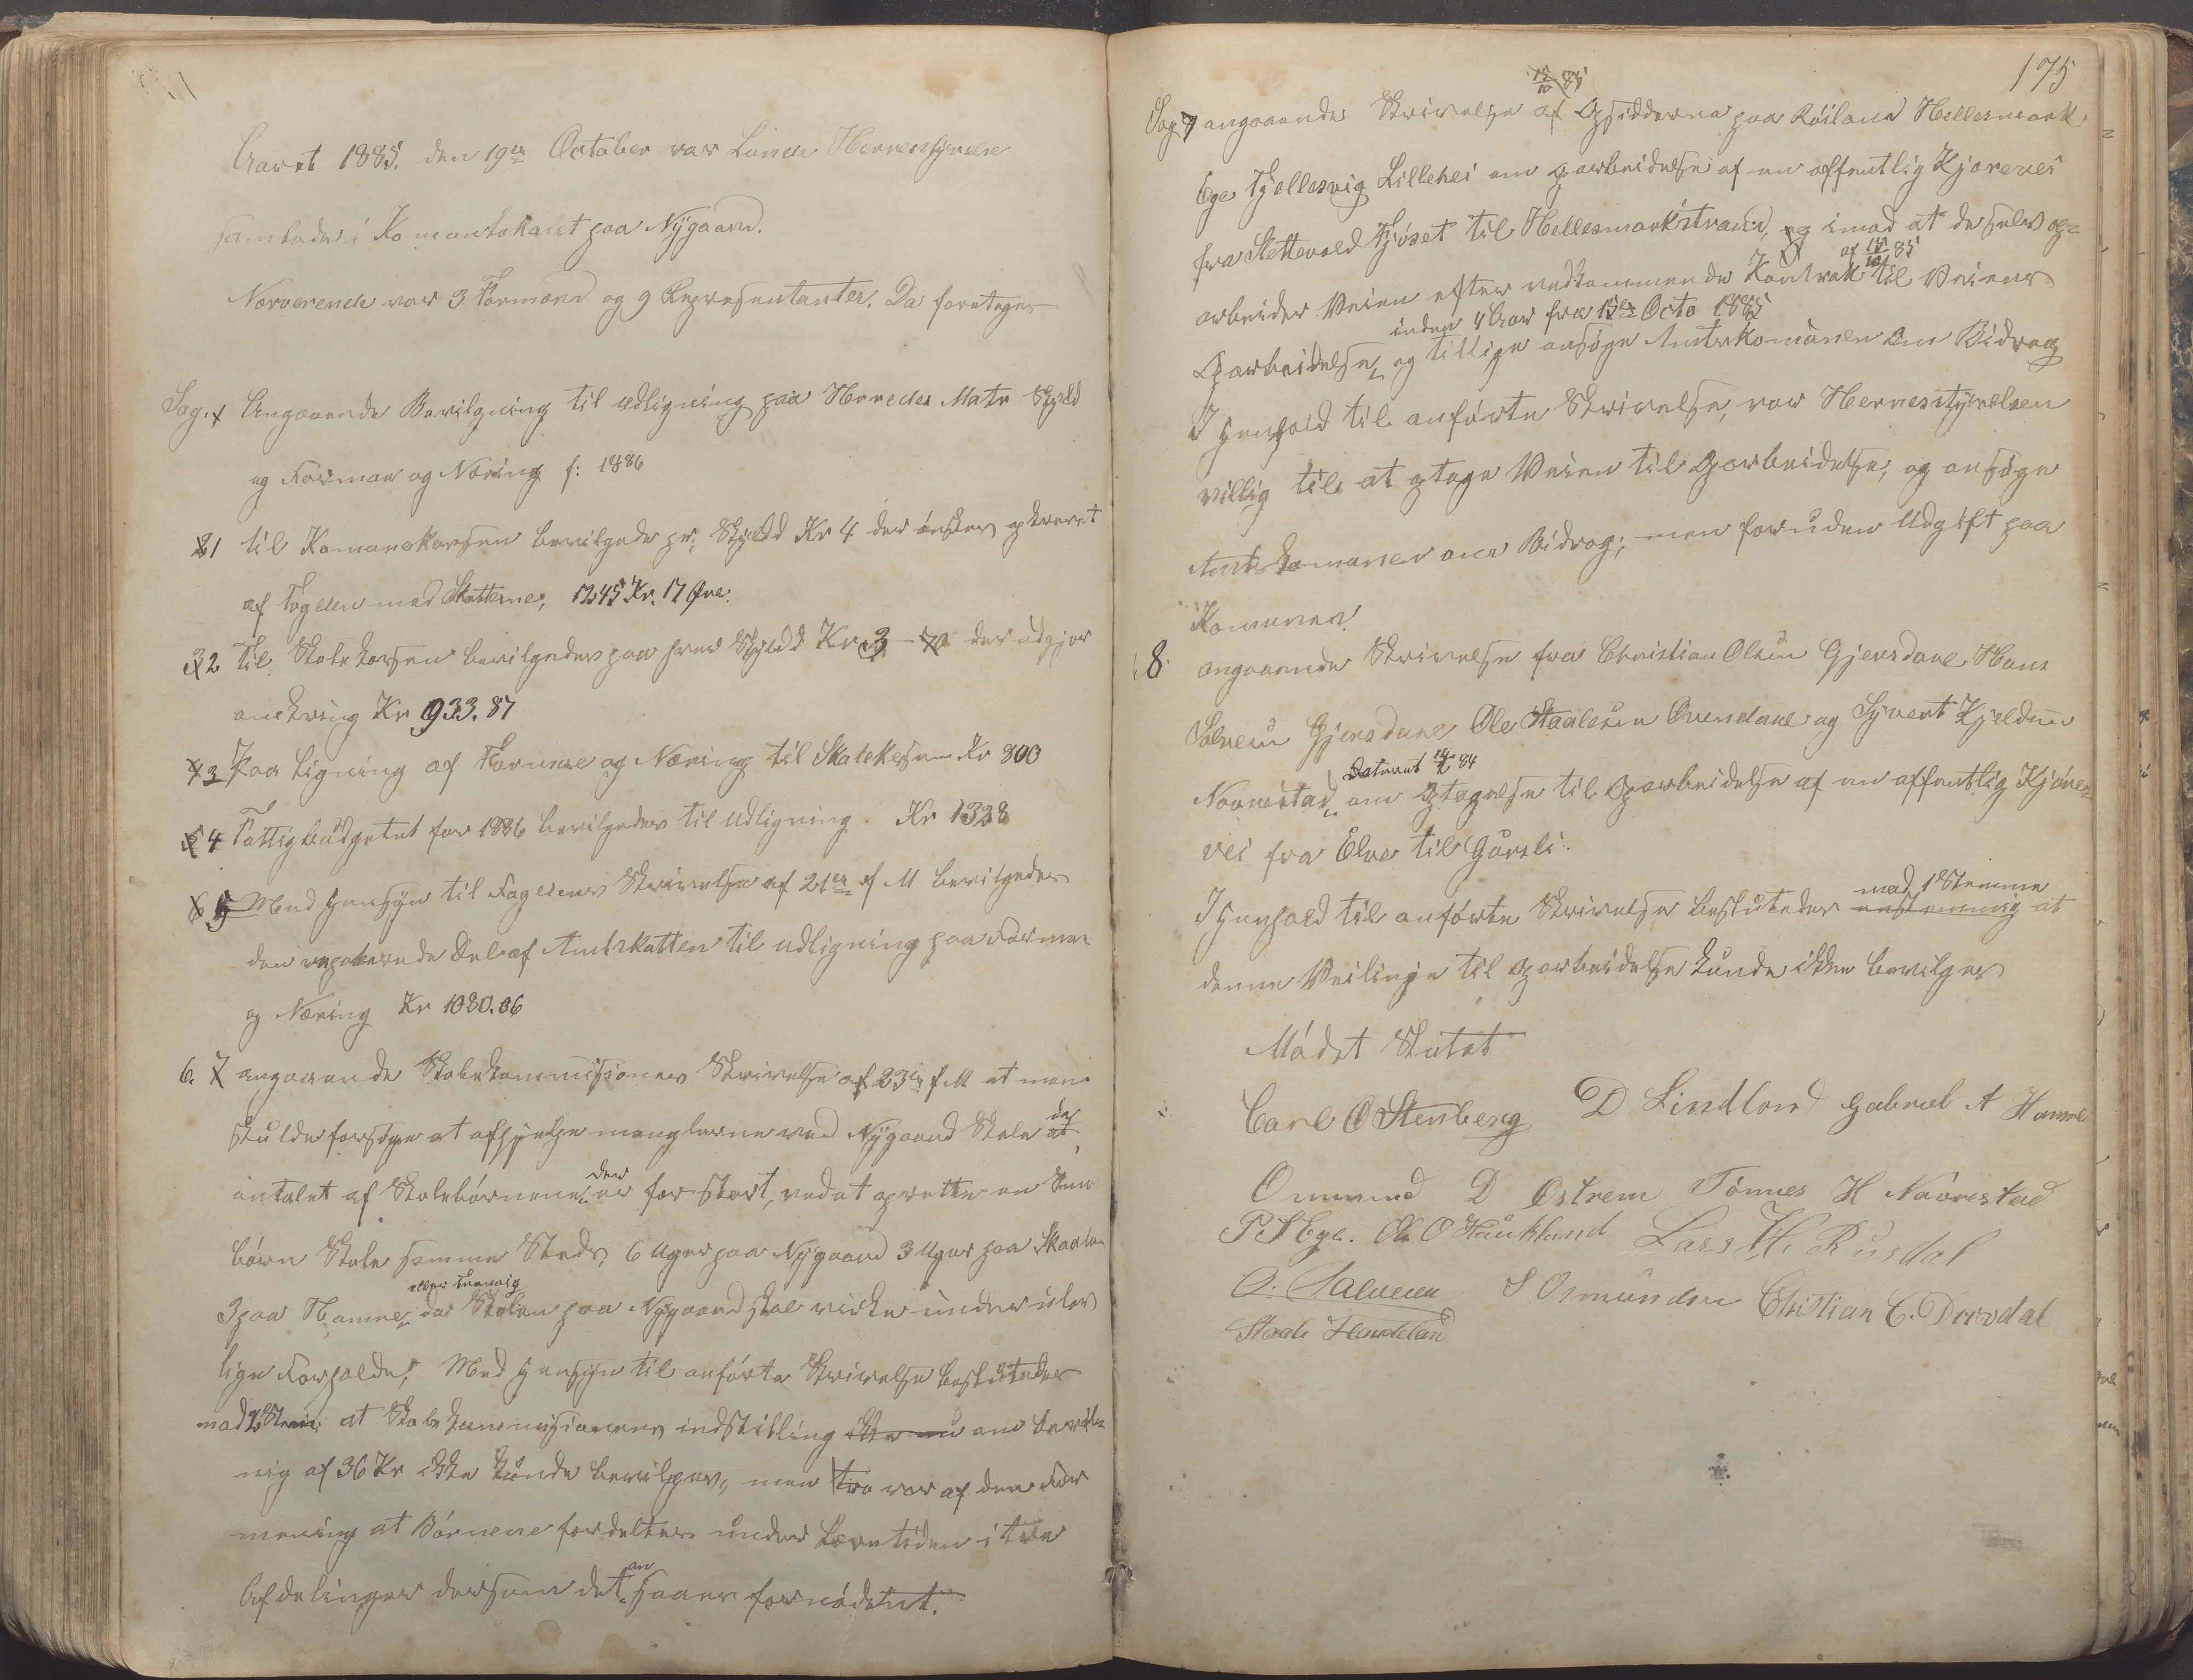 Aaret 1885. den 19de October var Lunde Herredstyrelse
samlede i Komunelokalet paa Nÿgaard.
Nærverende var 3 Formænd og 9 Representanter. Da foretoges
Sag. 1 Angaaende Bevilgning til udligning paa Herredes Matr Skyld
og Formue og Næring f: 1886
1 til Komunekassen bevilgedes pr: Skyldd Kr 4 der ønskes opkrævet
af Fogden med Skatterne, 1245 Kr. 17 Øre.
2 Til Skolekassen bevilgedes paa hver Skyldd Kr 3 – der udgjør
omkring Kr 933.87
3 Paa Ligning af Formue og Næring til Skolekassen Kr 800
4 Fattigbudgetet for 1886 bevilgedes til Udligning. Kr 1328
5 Med Hensÿn til Fogdens Skrivelse af 21de f M bevilgedes
den Del af Amtskatten til udligning paa Formue
og Næring Kr 1080.06
6. 7 angaaende Skolekommissionens Skrivelse af 23de f M at man
skulde forsøge at afhjælpe manglerne ved Nÿgaard Skole at da
antalet af Skolebørnene der er for stort, ved at oprette en Smaa
børn Skole samme Steds, 6 Uger paa Nÿgaard 3 Uger paa Skaaland
3 paa Hamre eller Tronvig, da Skolen paa Nÿgaard skal virke under ulov
lige Forholde, Med Hensÿn til anførte Skrivelse besluttedes
mod 2 Stem: at Skolekommissionens indstilling ikke om bevil=
ning af 36 Kr ikke kunde bevilges, men tvo var af den For
mening at Børnene fordeltes under Læretiden i tvo
Afdelinger dersom det ansaaes fornødent.
175
15/10 85
Sag 7 angaaende Skrivelse af Opsidderne paa Röiland Hellesmark
Ege Tjellesvig Lillehei om oparbeidelse af en offentlig Kjørevei
fra Slettevold Fjøset til Hellesmarkstrand, og imod at de selv op=
arbeider Veien efter vedkommende Kontrakt af 15/10 85 til Veiens
inden 4 Aar fra 15de Octo 1885
Oparbeidelse, og tillige ansøge Amtskomunen om Bidrag
I Henhold til anførte Skrivelse, var Herredsstÿrelsen
villig til at optage Veien til Oparbeidelse, og ansøge
Amtskomunen om Bidrag; men foruden Udgift paa
Komunen.
8. angaaende Skrivelse fra Christian Olsen Gjersdale Hans
Salvesen Gjersdale Ole Staalesen Ovendale og Sÿvert Kjeldsen
Datered 14/2 84
Navrestad, om Optagelse til Oparbeidelse af en offentlig Kjøre=
vei fra Elve til Gursli.
I Henhold til anførte Skrivelse beslutedes enstemmig mod 1 Stemme at
denne Veilinje til oparbeidelse kunde ikke bevilges
Mødet Slutet
Carl O Stenberg D Lindland Gabriel A Hamre
Ommund D Østrem Tønnes H Navrestad
P. S Ege. Ole O Haukland Lars H. Rusdal
O. Salvesen S Osmundsen Christian C. Drivdal
Staale Haukland